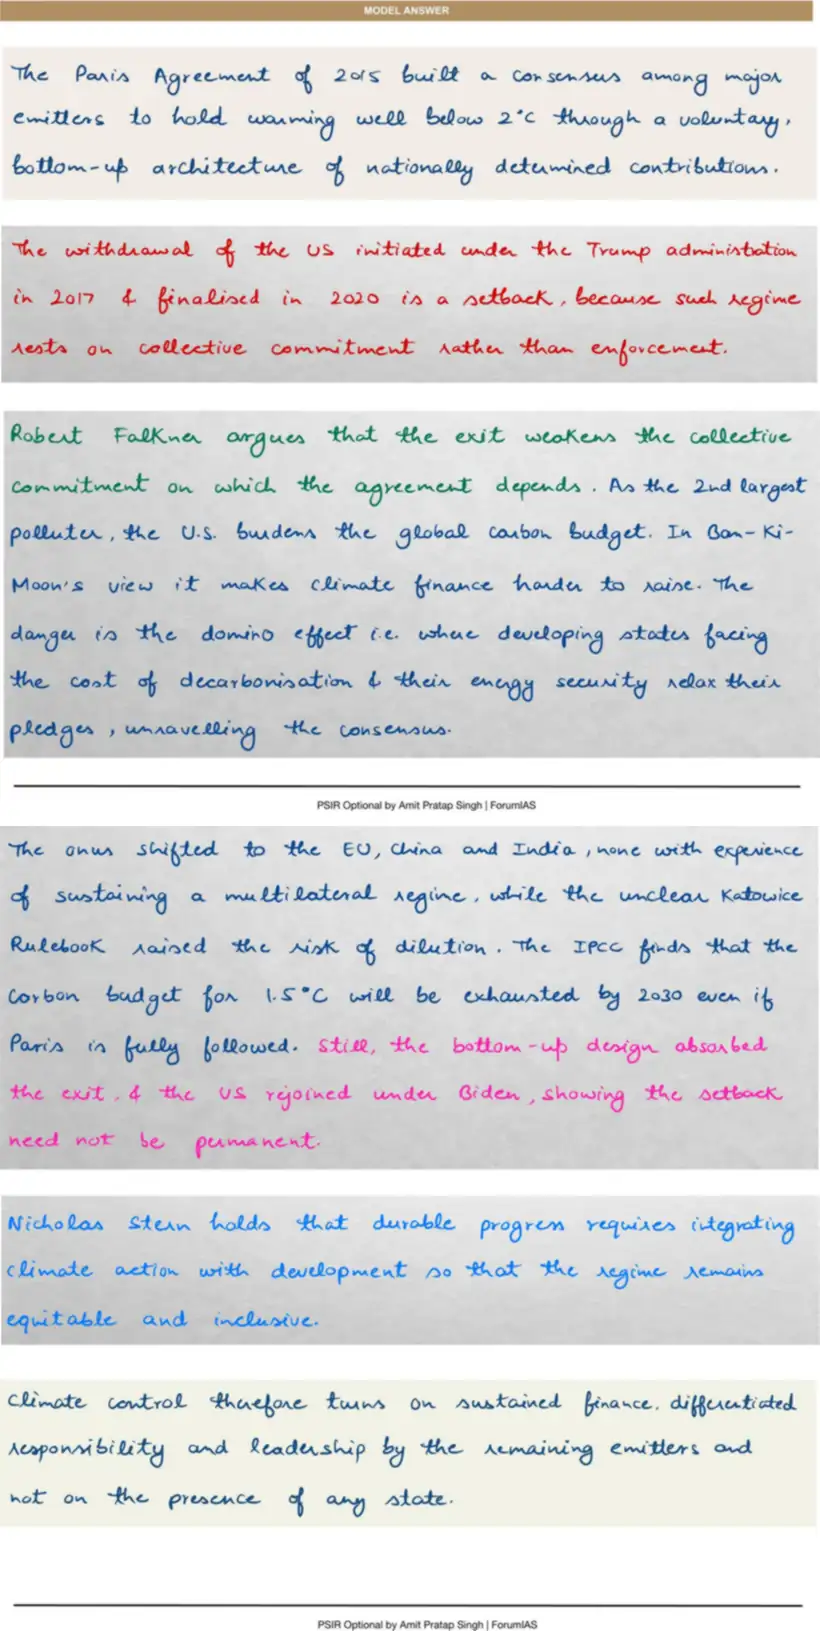 MODEL ANSWER
The Paris Agreement of 2015 built a consensus among major
emitters to hold warming well below 2°C through a voluntary,
bottom-up architecture of nationally determined contributions.
The withdrawal of the US initiated under the Trump administration
in 2017 & finalised in 2020 is a setback, because such regime
rests on collective commitment rather than enforcement.
Robert Falkner argues that the exit weakens the collective
commitment on which the agreement depends. As the 2nd largest
polluter, the U.S. burdens the global carbon budget. In Ban-Ki-
Moon's view it makes climate finance harder to raise. The
danger is the domino effect i.e. where developing states facing
the cost of decarbonisation & their energy security relax their
pledges, unravelling the consensus.
PSIR Optional by Amit Pratap Singh | ForumIAS
The onus shifted to the EU, China and India, none with experience
of sustaining a multilateral regime, while the unclear Katowice
Rulebook raised the risk of dilution. The IPCC finds that the
Carbon budget for 1.5°C will be exhausted by 2030 even if
Paris is fully followed. Still, the bottom-up design absorbed
the exit, & the US rejoined under Biden, showing the setback
need not be permanent.
Nicholas Stern holds that durable progress requires integrating
climate action with development so that the regime remains
equitable and inclusive.
Climate control therefore turns on sustained finance, differentiated
responsibility and leadership by the remaining emitters and
not on the presence of any state.
PSIR Optional by Amit Pratap Singh | ForumIAS